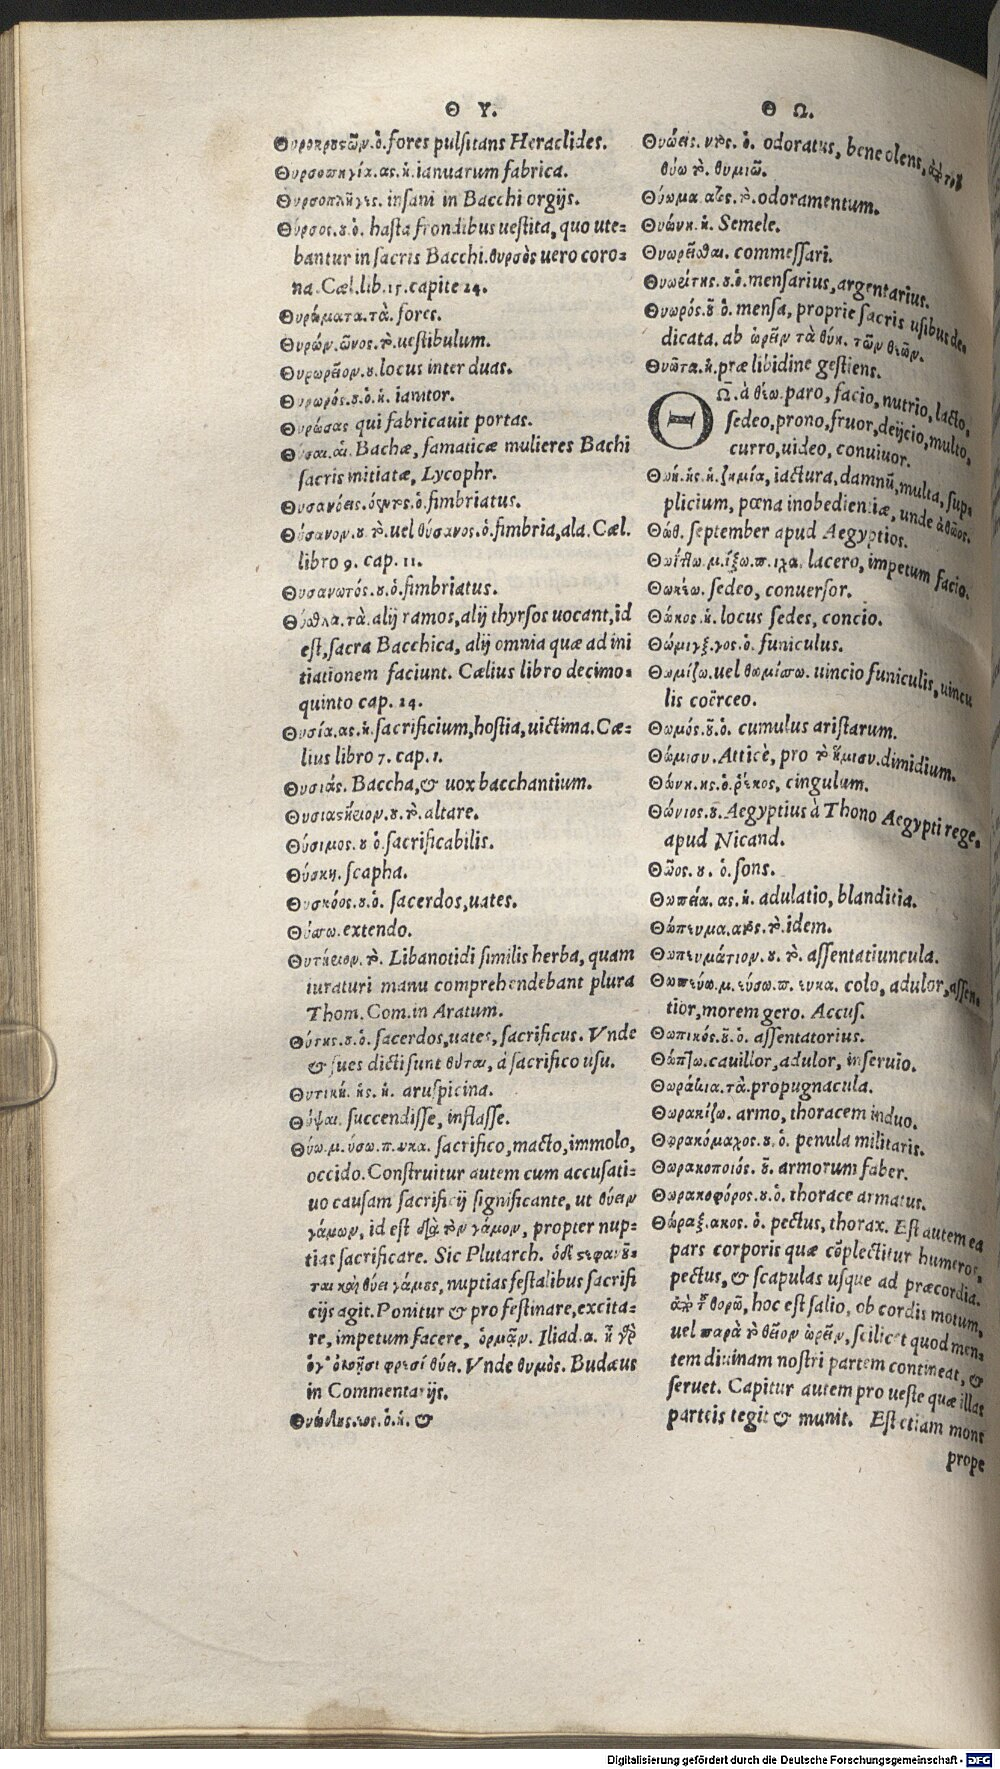 Θ Υ.
Θυροκρουςῶν. ὁ. fores pulsitans Heraclides.
Θυρσοπηγία. ας. ἡ. ianuarum fabrica.
Θυρσοπλῆγες. insani in Bacchi orgijs.
Θύρσος. ου. ὁ. hasta frondibus uestita, quo ute-
bantur in sacris Bacchi. θυρσὸς uero coro-
na. Cæl. lib. 15. capite 24.
Θυρώματα. τὰ. fores.
Θυρών. ῶνος. ὁ. uestibulum.
Θυρωρεῖον. ου. locus inter duas.
Θυρωρός. οῦ. ὁ. ἡ. ianitor.
Θυρώσας qui fabricauit portas.
Θυσαι. αἱ. Bachæ, famaticæ mulieres Bachi
sacris initiatæ, Lycophr.
Θυσανόεις. όεντος. ὁ. fimbriatus.
Θύσανον. ου. τὸ. uel θύσανος. ὁ. fimbria, ala. Cæl.
libro 9. cap. 11.
Θυσανωτός. οῦ. ὁ. fimbriatus.
Θύσθλα. τὰ. alij ramos, alij thyrsos uocant, id
est, sacra Bacchica, alij omnia quæ ad ini
tiationem faciunt. Cælius libro decimo-
quinto cap. 24.
Θυσία. ας. ἡ. sacrificium, hostia, uictima. Cæ-
lius libro 7. cap. 1.
Θυσιάς. Baccha, & uox bacchantium.
Θυσιαςήριον. ου. τὸ. altare.
Θύσιμος. ου ὁ. sacrificabilis.
Θύσκη. scapha.
Θυσκόος. ου. ὁ. sacerdos, uates.
Θύσσω. extendo.
Θυτήριον. τὸ. Libanotidi similis herba, quam
iuraturi manu comprehendebant plura
Thom. Com. in Aratum.
Θύτης. ου. ὁ. sacerdos, uates, sacrificus. Vnde
& sues dicti sunt θύται, à sacrifico usu.
Θυτική. ῆς. ἡ. aruspicina.
Θύψαι. succendisse, inflasse.
Θύω. μ. ύσω. π. υκα. sacrifico, macto, immolo,
occido. Construitur autem cum accusati-
uo causam sacrificij significante, ut θύειν
γάμων, id est διὰ τὸν γάμον, propter nup-
tias sacrificare. Sic Plutarch. ὁδὲ ςεφανοῦ-
ται καὶ θύει γάμους, nuptias festalibus sacrifi
cijs agit. Ponitur & pro festinare, excita-
re, impetum facere, ὁρμᾷν. Iliad. α. ἦ γὰρ
ὅγ' ὀλοῇσι φρεσί θύει. Vnde θυμὸς. Budæus
in Commentarijs.
Θυώδης. εος. ὁ. ἡ. &
Θ Ω.
Θυώεις. εντος. ὁ. odoratus, bene olens, ἀπὸ τοῦ
θύω τὸ. θυμιῶ.
Θύωμα. ατος. τὸ. odoramentum.
Θυώνη. ἡ. Semele.
Θυωρεῖσθαι. commessari.
Θυωρίτης. ου. ὁ. mensarius, argentarius.
Θυωρός. οῦ ὁ. mensa, proprie sacris usibus de-
dicata. ab ὠρεῖν τὰ θύη. τῶν θεῶν.
Θυῶτα. ἡ. præ libidine gestiens.
ΘΩ. à θέω. paro, facio, nutrio, lacto,
sedeo, prono, fruor, deijcio, multo,
curro, uideo, conuiuor.
Θωή. ῆς. ἡ. ζημία, iactura, damnũ, multa, sup-
plicium, pœna inobedientiæ, unde ἀθῶος.
Θώθ. september apud Aegyptios.
Θωΰσσω. μ. ίξω. π. ιχα. lacero, impetum facio.
Θωκέω. sedeo, conuersor.
Θώκος. ἡ. locus sedes, concio.
Θώμιγξ. γος. ὁ. funiculus.
Θωμίζω. uel θωμίσσω. uincio funiculis, uincu
lis coërceo.
Θωμός. οῦ. ὁ. cumulus aristarum.
Θώμισυ. Atticè, pro τὸ ἥμισυ. dimidium.
Θώνη. ης. ὁ. ῥίσκος, cingulum.
Θώνιος. ου. Aegyptius à Thono Aegypti rege.
apud Nicand.
Θῶος. ου. ὁ. sons.
Θωπεία. ας. ἡ. adulatio, blanditia.
Θώπευμα. ατος. τὸ. idem.
Θωπευμάτιον. ου. τὸ. assentatiuncula.
Θωπεύω. μ. εύσω. π. ευκα. colo, adulor, assen-
tior, morem gero. Accus.
Θωπικός. οῦ. ὁ. assentatorius.
Θώπτω. cauillor, adulor, inseruio.
Θωράκια. τὰ. propugnacula.
Θωρακίζω. armo, thoracem induo.
Θωρακόμαχος. ου. ὁ. penula militaris.
Θωρακοποιός. οῦ. armorum faber.
Θωρακοφόρος. ου. ὁ. thorace armatus.
Θώραξ. ακος. ὁ. pectus, thorax. Est autem ea
pars corporis quæ cõplectitur humeros,
pectus, & scapulas usque ad præcordia.
ἀπὸ τοῦ θορῶ, hoc est salio, ob cordis motum,
uel παρὰ τὸ θεῖον ὠρεῖν, scilicet quod men-
tem diuinam nostri partem contineat, &
seruet. Capitur autem pro ueste quæ illas
parteis tegit & munit. Est etiam mons
prope
Digitalisierung gefördert durch die Deutsche Forschungsgemeinschaft - DFG